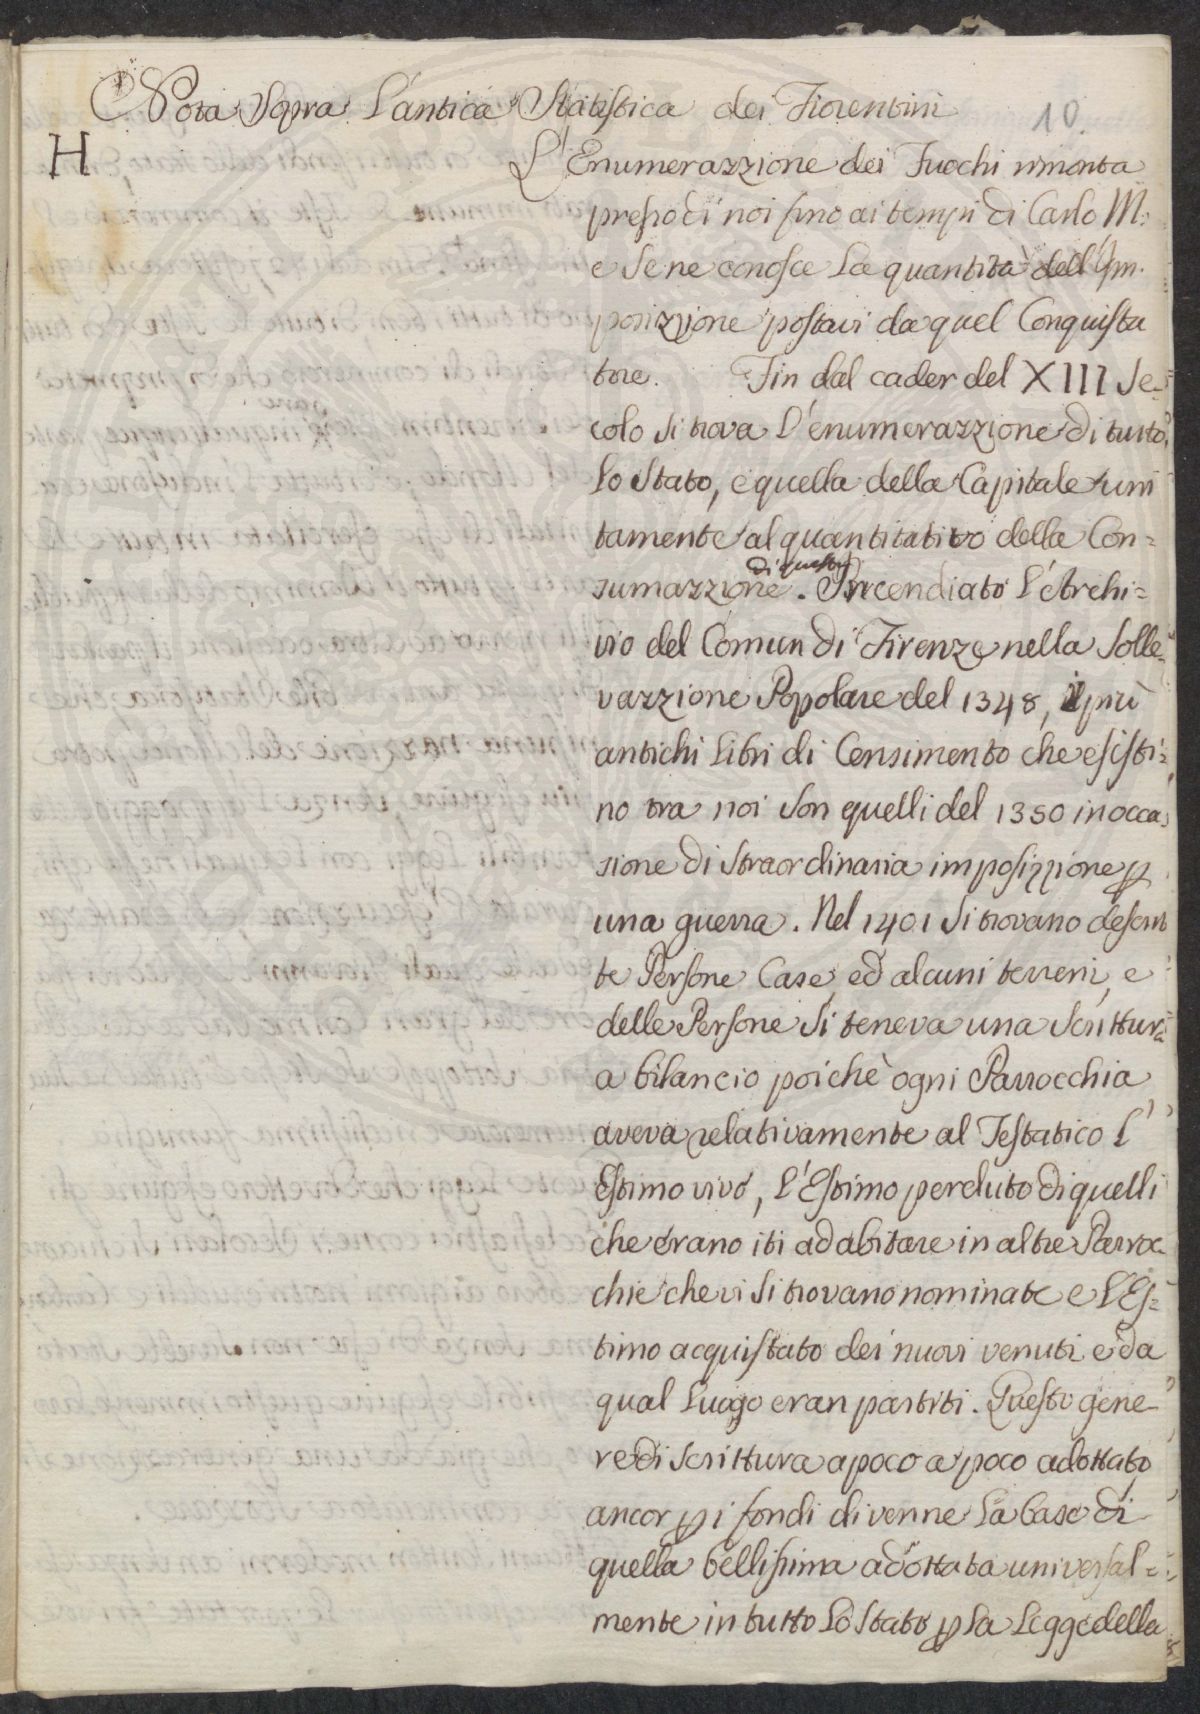 Nota Sopra L'antica Statistica dei Fiorentini
10.
H
L'Enumerazzione dei Fuochi rimonta
presso di noi fino ai tempi di Carlo M:
e Se ne conosce La quantità dell'Im-
posizzione postavi da quel Conquista
tore. Fin dal cader del XIII Se-
colo Si trova L'enumerazzione di tutto
Lo Stato, e quella della Capitale uni
tamente al quantitativo della Con=
sumazzione di questa. Incendiato L'Archi=
vio del Comun di Firenze nella Solle-
vazzione Popolare del 1348, i più
antichi Libri di Censimento che esisti=
no tra noi Son quelli del 1350 in occa
sione di Straordinaria imposizzione p
una guerra. Nel 1401 Si trovano descrit
te Persone Case, ed alcuni terreni, e
delle Persone Si teneva una Scrittura
a bilancio poichè ogni Parrocchia
aveva relativamente al Testatico L'
Estimo vivo, L'Estimo perduto di quelli
che erano iti ad abitare in altre Parroc-
chie che vi Si trovano nominate e L'Es=
timo acquistato dei nuovi venuti e da
qual Luogo eran partiti. Questo gene-
re di Scrittura a poco a poco adottato
ancor p i fondi divenne La base di
quella bellissima adottata universal=
mente in tutto Lo Stato p La Legge della